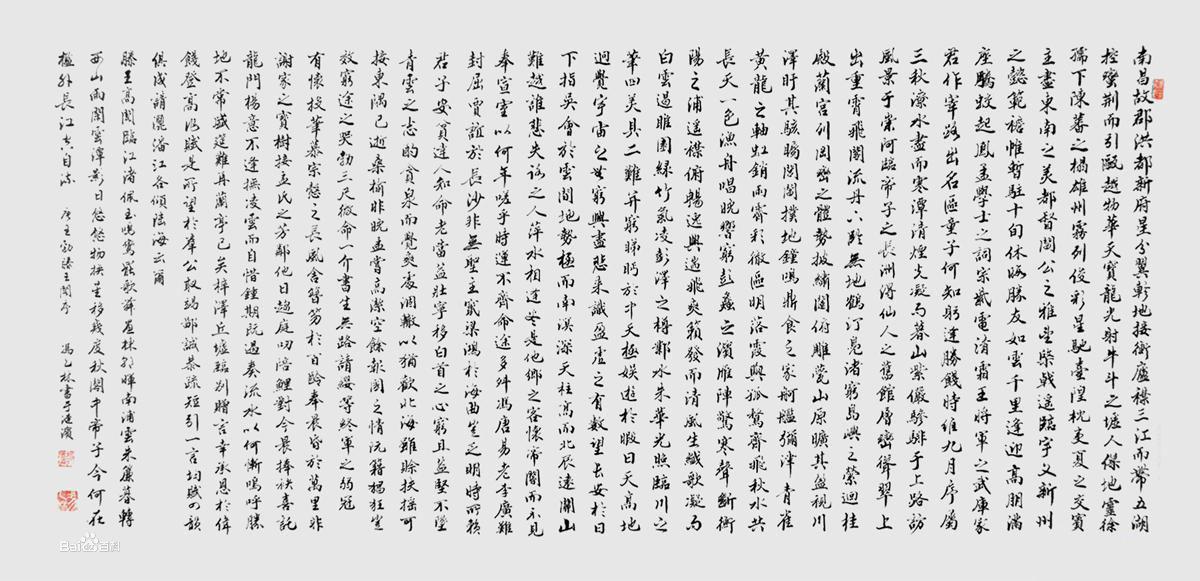 南昌故郡洪都新府星分翼軫地接衡廬襟三江而帶五湖
控蠻荆而引甌越物華天寶龍光射牛斗之墟人傑地靈徐
孺下陳蕃之榻雄州霧列俊彩星馳臺隍枕夷夏之交賓
主盡東南之美都督閻公之雅望棨戟遥臨宇文新州
之懿範襜帷暫駐十旬休暇勝友如雲千里逢迎高朋滿
座騰蛟起鳳孟學士之詞宗紫電清霜王將軍之武庫家
君作宰路出名區童子何知躬逢勝餞時維九月序屬
三秋潦水盡而寒潭清煙光凝而暮山紫儼驂騑于上路訪
風景于崇阿臨帝子之長洲得仙人之舊館層巒聳翠上
出重霄飛閣流丹下臨無地鶴汀鳧渚窮島嶼之縈迴桂
殿蘭宮列岡巒之體勢披繡闥俯雕甍山原曠其盈視川
澤盱其駭矚閭閻撲地鐘鳴鼎食之家舸艦彌津青雀
黃龍之軸虹銷雨霽彩徹區明落霞與孤鶩齊飛秋水共
長天一色漁舟唱晚響窮彭蠡之濱雁陣驚寒聲斷衡
陽之浦遥襟俯暢逸興遄飛爽籟發而清風生纖歌凝而
白雲遏睢園緑竹氣凌彭澤之樽鄴水朱華光照臨川之
筆四美具二難并窮睇眄於中天極娱遊於暇日天高地
迥覺宇宙之無窮興盡悲來識盈虛之有數望長安於日
下指吳會於雲間地勢極而南溟深天柱高而北辰遠關山
難越誰悲失路之人萍水相逢盡是他鄉之客懷帝閽而不見
奉宣室以何年嗟乎時運不齊命途多舛馮唐易老李廣難
封屈賈誼於長沙非無聖主竄梁鴻於海曲豈乏明時所賴
君子安貧達人知命老當益壯寧移白首之心窮且益堅不墜
青雲之志酌貪泉而覺爽處涸轍以猶歡北海雖賒扶摇可
接東隅已逝桑榆非晚孟嘗高潔空餘報國之情阮籍猖狂豈
效窮途之哭勃三尺微命一介書生無路請纓等終軍之弱冠
有懷投筆慕宗慤之長風舍簪笏於百齡奉晨昏於萬里非
謝家之寶樹接孟氏之芳鄰他日趨庭叨陪鯉對今晨捧袂喜託
龍門楊意不逢撫凌雲而自惜鍾期既遇奏流水以何慚嗚呼勝
地不常盛筵難再蘭亭已矣梓澤丘墟臨別贈言幸承恩於偉
餞登高作賦是所望於羣公敢竭鄙誠恭疏短引一言均賦四韻
俱成請灑潘江各傾陸海云爾
滕王高閣臨江渚佩玉鳴鸞罷歌舞畫棟朝暉南浦雲朱簾暮捲
西山雨閒雲潭影日悠悠物換星移幾度秋閣中帝子今何在
檻外長江空自流 唐王勃滕王閣序 馮乙書于
Baidu百科